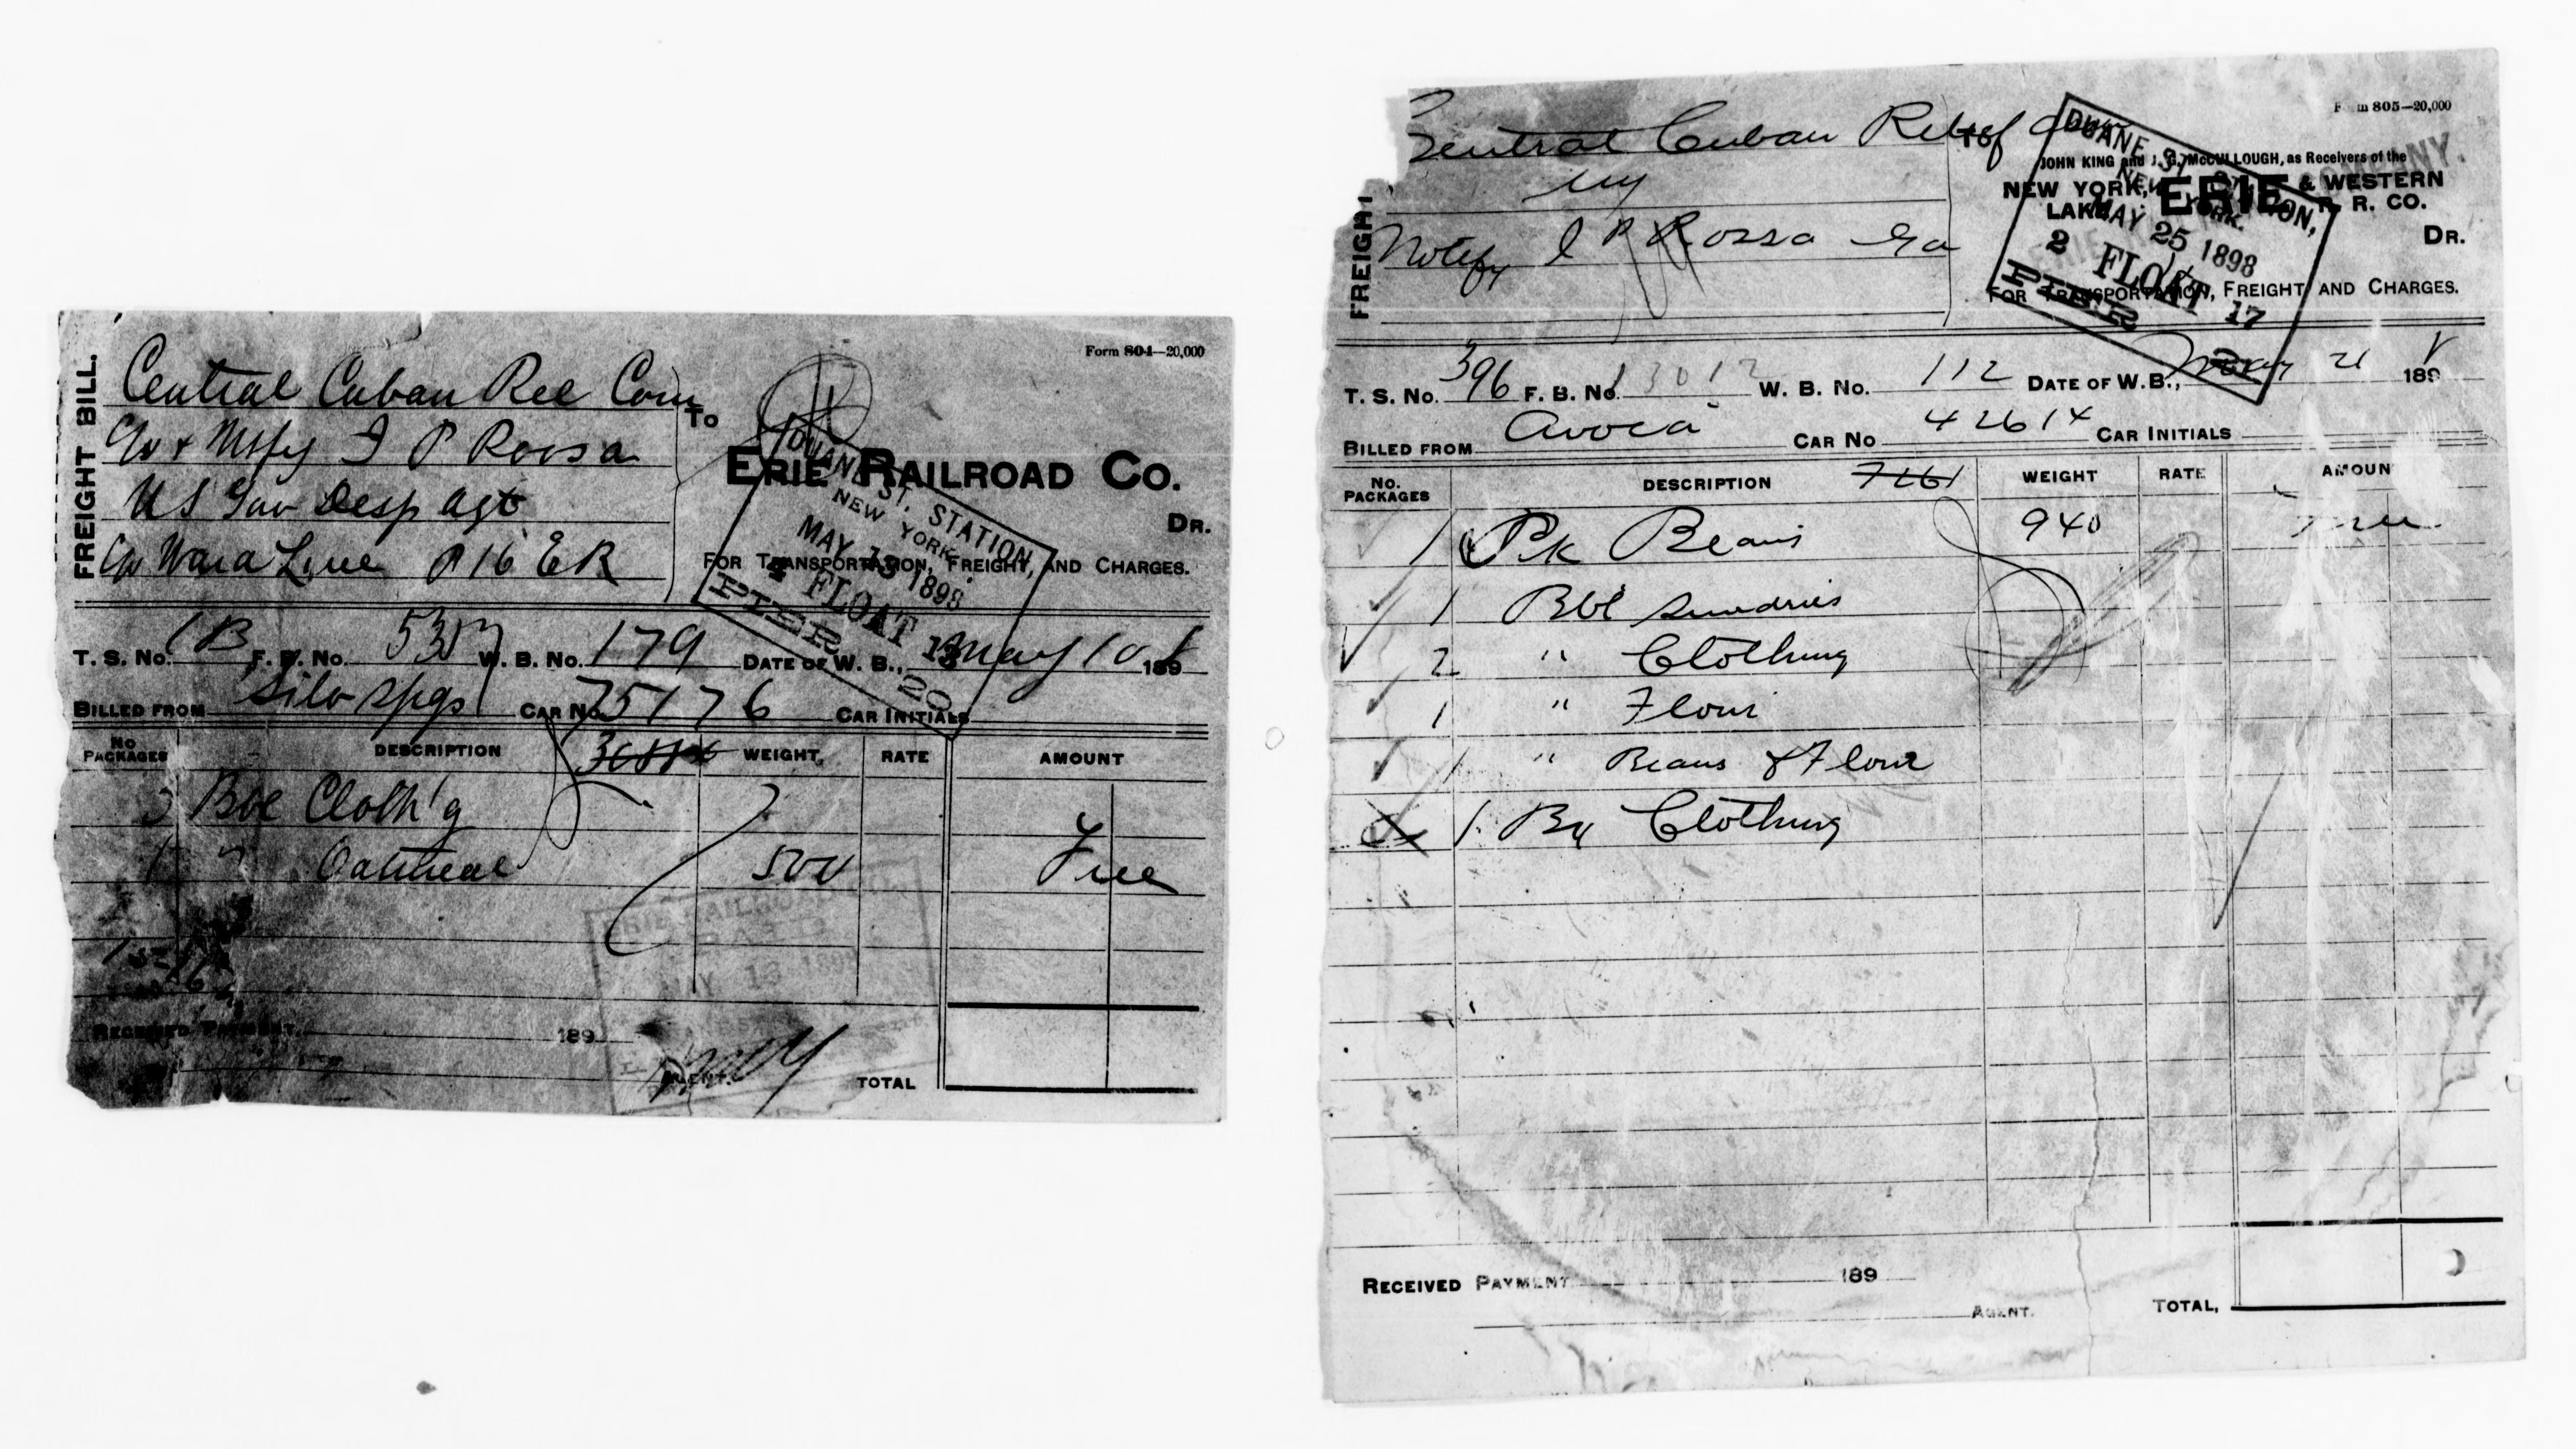 FREIGHT BILL.
Form 804—20,000
Central Cuban Rel Com
To
C/o & Ntfy I P Roosa
ERIE RAILROAD CO.
US Gov Desp Agt
DR.
C/o Ward Line P 16 ER
FOR TRANSPORTATION, FREIGHT, AND CHARGES.
DUANE ST. STATION
NEW YORK.
MAY 13 1898
FLOAT 13
PIER 20
T. S. No. F. B. No. W. B. No. 179 DATE OF W. B., May 10 1898
BILLED FROM Silv Spgs CAR No. 75176 CAR INITIALS
No. PACKAGES DESCRIPTION WEIGHT, RATE AMOUNT
3 Bbl Cloth'g
1 " Oatmeal 500 Free
ERIE RAILROAD
MAY 13 1898
RECEIVED PAYMENT, 189
AGENT. TOTAL
FREIGHT
Form 805—20,000
Central Cuban Relief Com
To
NY
JOHN KING and J. G. McCULLOUGH, as Receivers of the
NEW YORK, LAKE ERIE & WESTERN R. R. CO.
Notify I P Rossa Ga
DR.
FOR TRANSPORTATION, FREIGHT AND CHARGES.
DUANE ST. STATION,
NEW YORK.
MAY 25 1898
2 FLOAT 17
PIER 2
T. S. No. 396 F. B. No. 13012 W. B. No. 112 DATE OF W. B., May 21 1898
BILLED FROM Avoca CAR No 42614 CAR INITIALS
No. PACKAGES DESCRIPTION 7261 WEIGHT RATE AMOUN
1 Pk Beans 940 Free
1 Bbl Sundries
2 " Clothing
1 " Flour
1 " Beans & Flour
1 Bx Clothing
RECEIVED PAYMENT 189
AGENT. TOTAL,